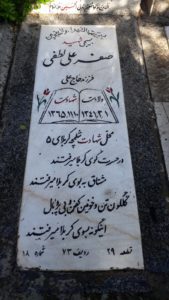 شهید
صفر علی لطفی
فرزند حاج علی
ولادت شهادت
۱۳۴۱،۳،۱ ۱۳۶۵،۱۱
محل شهادت شلمچه کربلای ۵
در حسرت کوی کربلا میرفتند
مشتاق به بوی کربلا میرفتند
گلگون تن و خونین کفن و بی
اینگونه بسوی کربلا میرفتند
قطعه ۲۹ ردیف ۷۳ شماره ۱۸